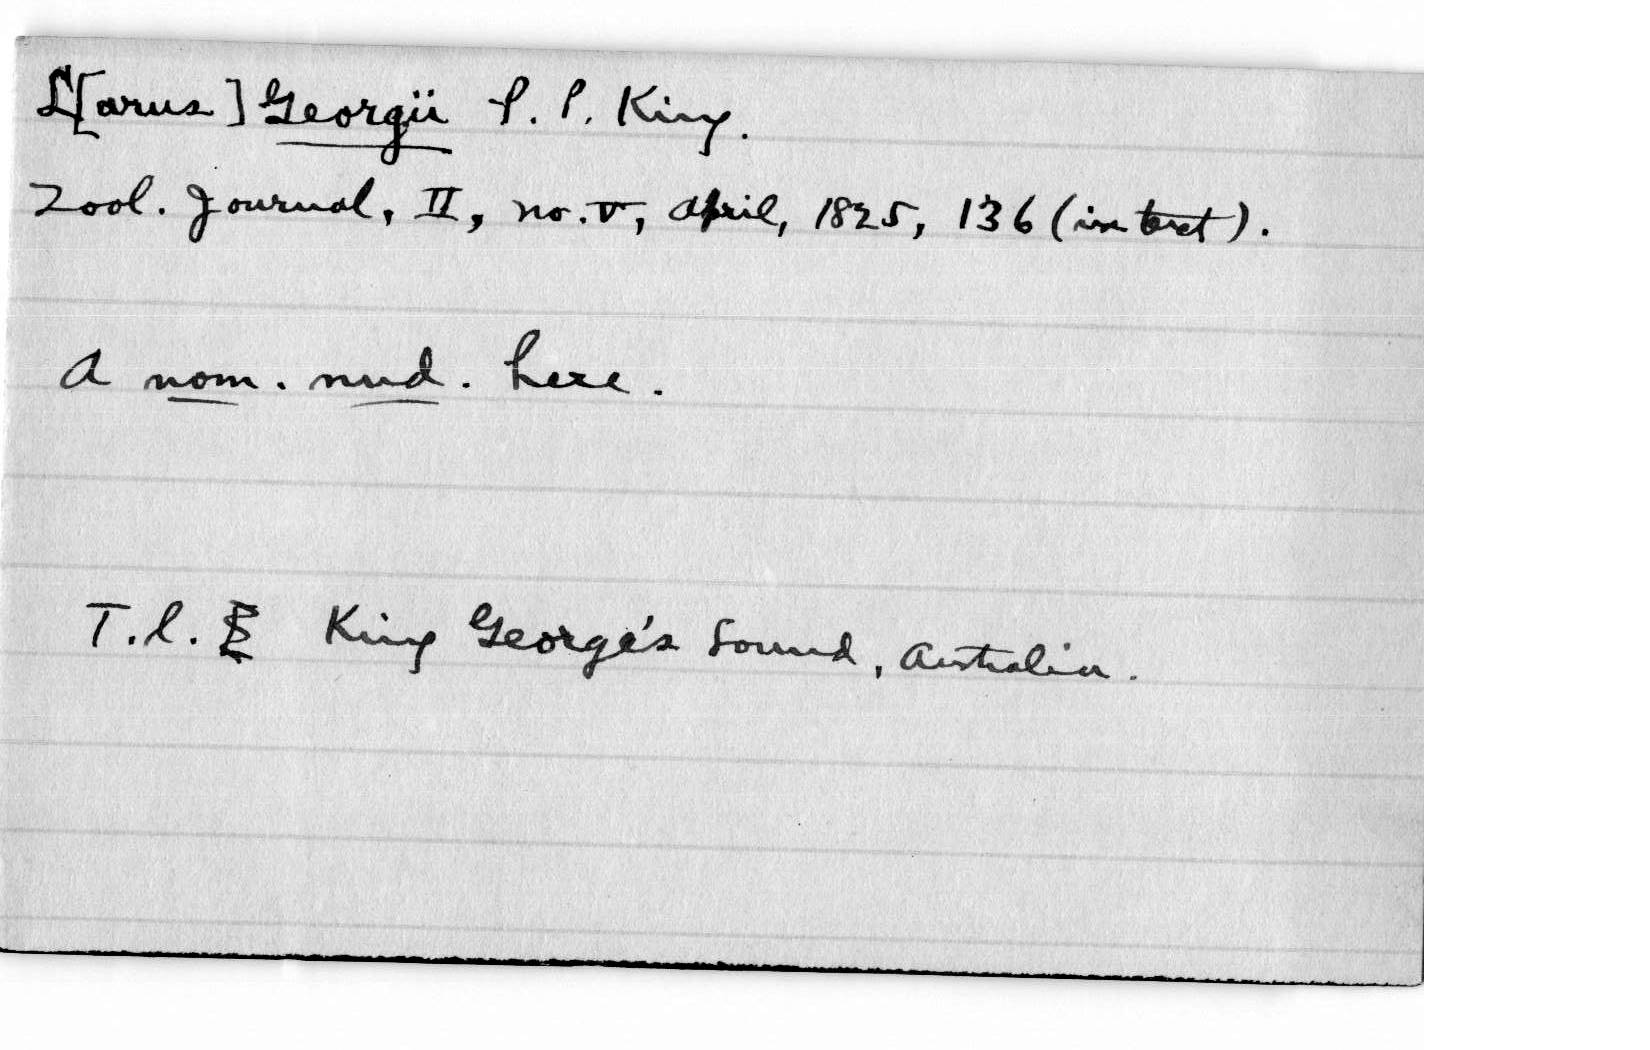 L[arus] Georgii P. P. King.
Zool. Journal, II, no. V, April, 1825, 136 (in text).
A nom. nud. here.
T.l. King George's Sound, Australia.